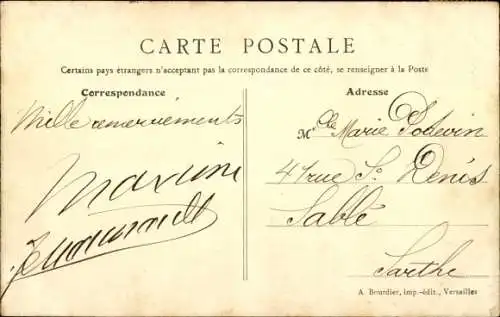 CARTE POSTALE
Certains pays étrangers n'acceptant pas la correspondance de ce côté, se renseigner à la Poste
Correspondance
Mille remerciements
Maxime
Adresse
Mlle Marie Potevin
41 rue St Denis
Sablé
Sarthe
A. Bourdier, imp.-édit., Versailles